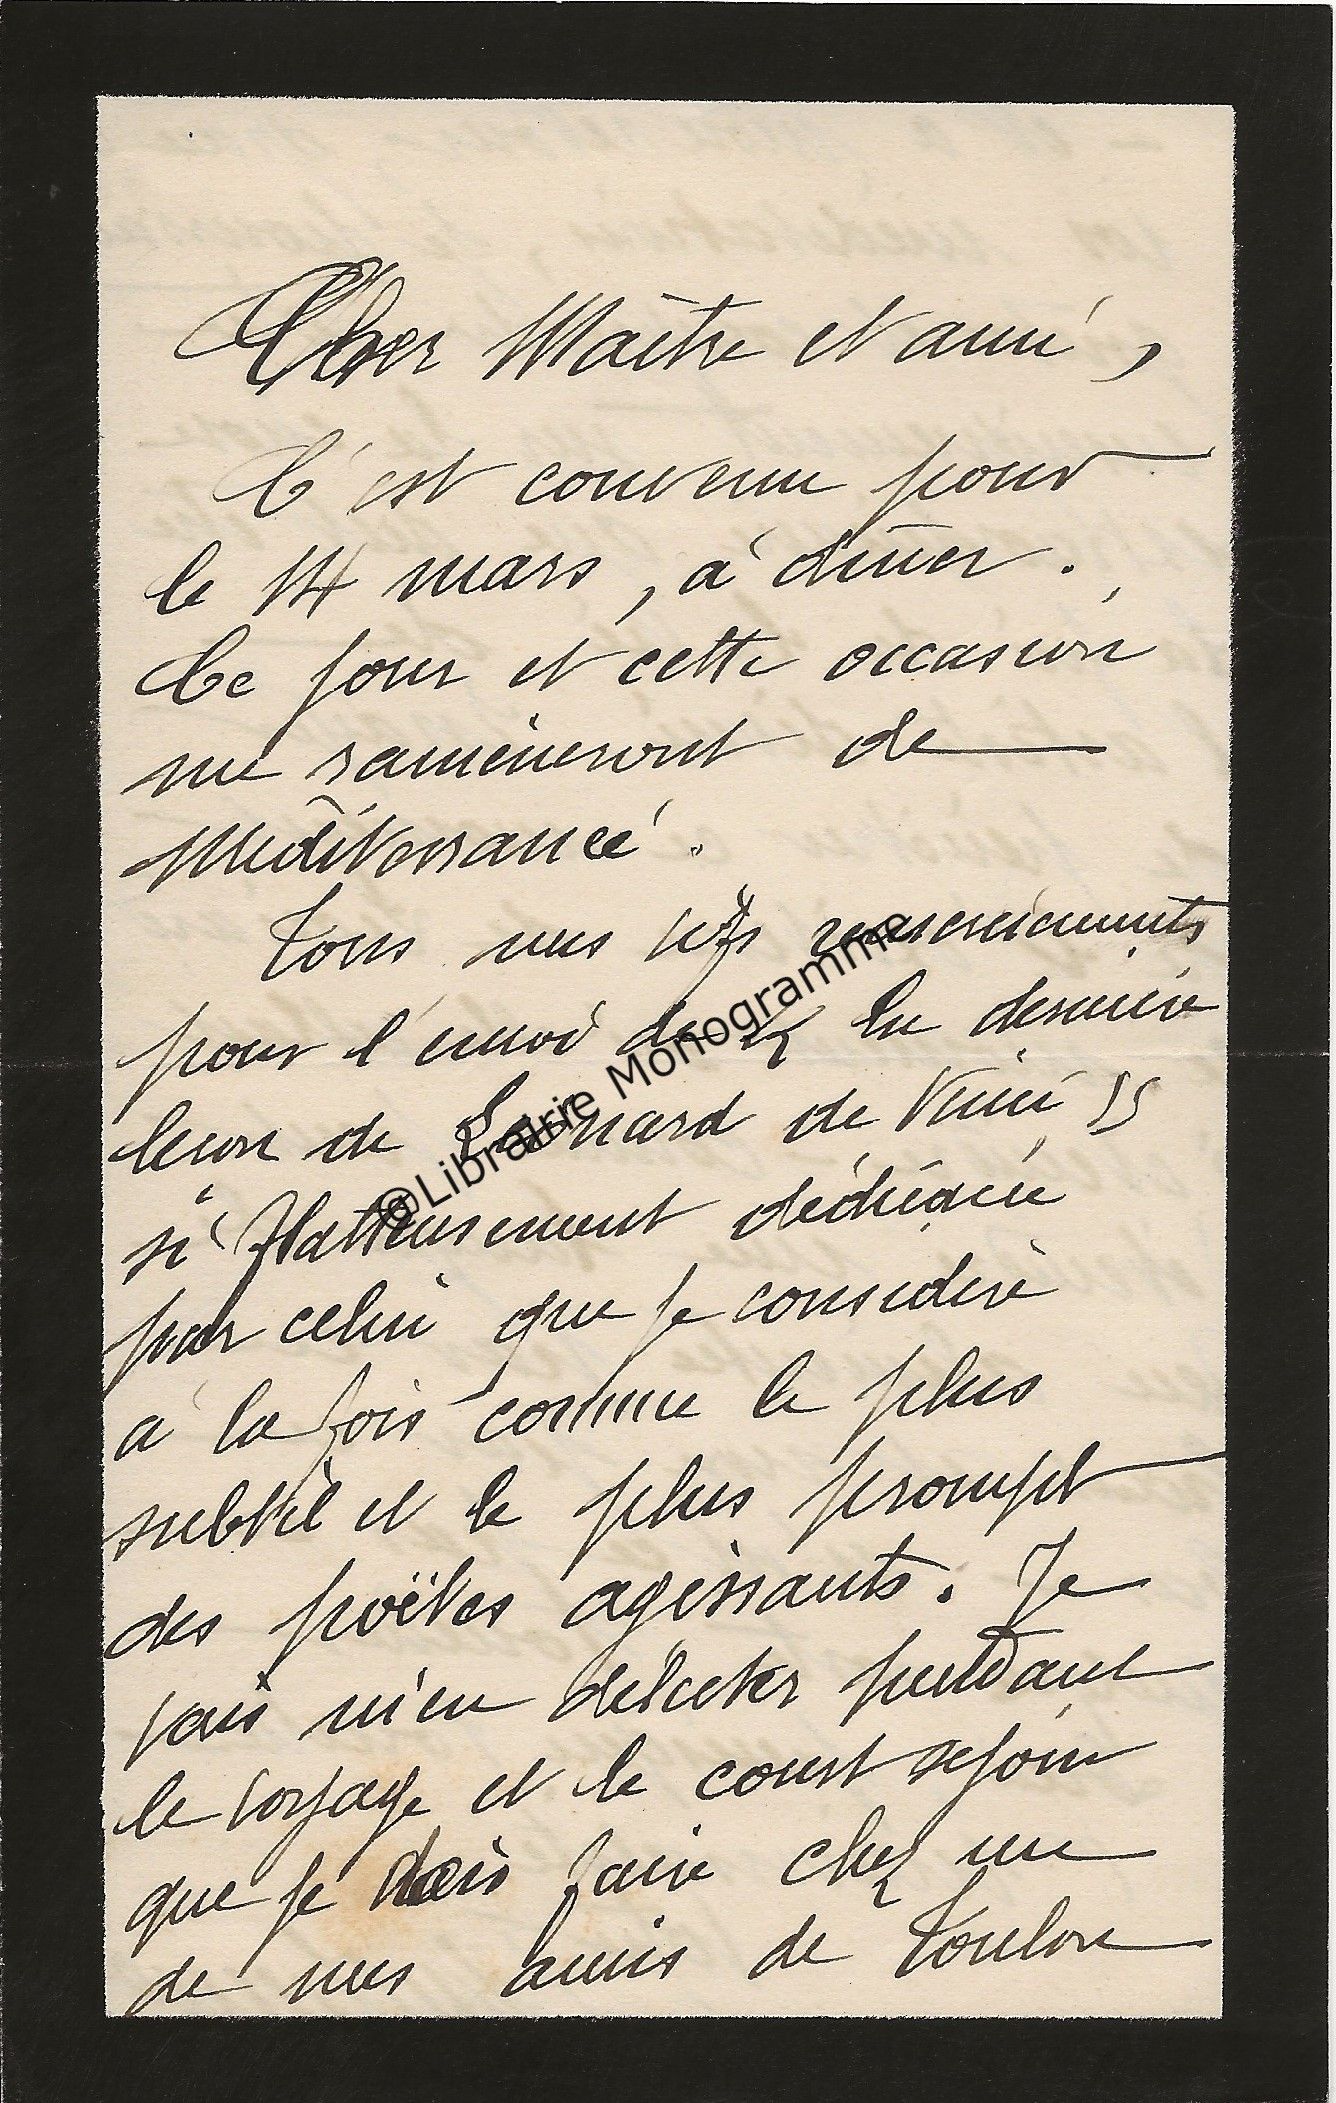 Cher Maître et ami,
C'est convenu pour
le 14 mars, à dîner.
Ce jour et cette occasion
me ramèneront de
Méditerranée.
Tous mes vifs remerciements
pour l'envoi de « La dernière
leçon de Léonard de Vinci »
si flatteusement dédicacée
par celui que je considère
à la fois comme le plus
subtil et le plus prompt
des poëtes agissants. Je
vais m'en délecter pendant
le voyage et le court séjour
que je dois faire chez un
de mes amis de Toulon
©Librairie Monogramme